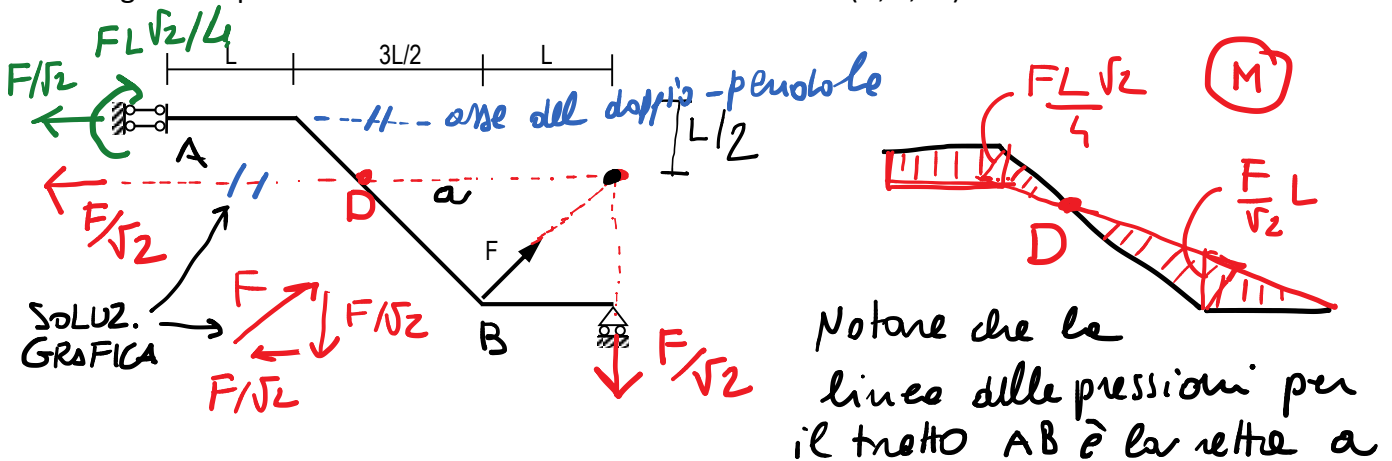 FL√2/4
L
3L/2
L
F/√2
--//-- asse del doppio-pendolo
A
L/2
F/√2
D
a
F
SOLUZ.
GRAFICA
F
F/√2
F/√2
B
F/√2
FL√2
4
M
F
√2
L
D
Notare che la
linea delle pressioni per
il tratto AB è la retta a